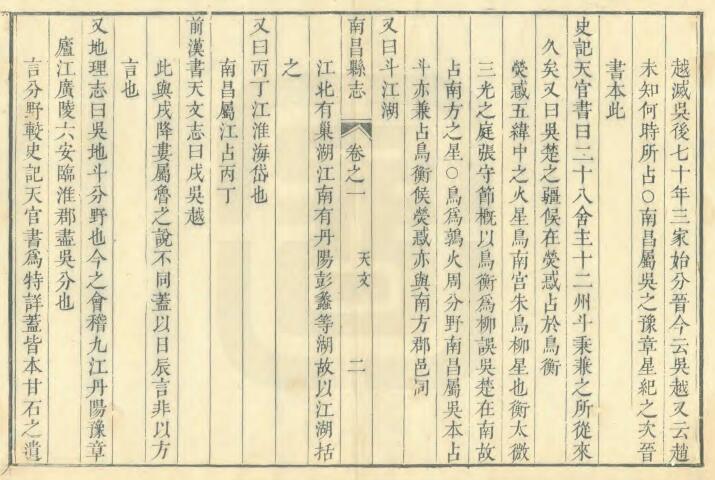 越滅吳後七十年三家始分晉今云吳越又云趙
未知何時所占○南昌屬吳之豫章星紀之次晉
書本此
史記天官書曰二十八舍主十二州斗秉兼之所從來
久矣又曰吳楚之疆候在熒惑占於鳥衡
熒惑五緯中之火星鳥南宮朱鳥柳星也衡太微
三光之庭張守節概以鳥衡爲柳誤吳楚在南故
占南方之星○鳥爲鶉火周分野南昌屬吳本占
斗亦兼占鳥衡候熒惑亦與南方郡邑同
又曰斗江湖
南昌縣志 卷之一 天文 二
江北有巢湖江南有丹陽彭蠡等湖故以江湖括
之
又曰丙丁江淮海岱也
南昌屬江占丙丁
前漢書天文志曰戌吳越
此與戌降婁屬魯之說不同蓋以日辰言非以方
言也
又地理志曰吳地斗分野也今之會稽九江丹陽豫章
廬江廣陵六安臨淮郡盡吳分也
言分野較史記天官書爲特詳蓋皆本甘石之遺